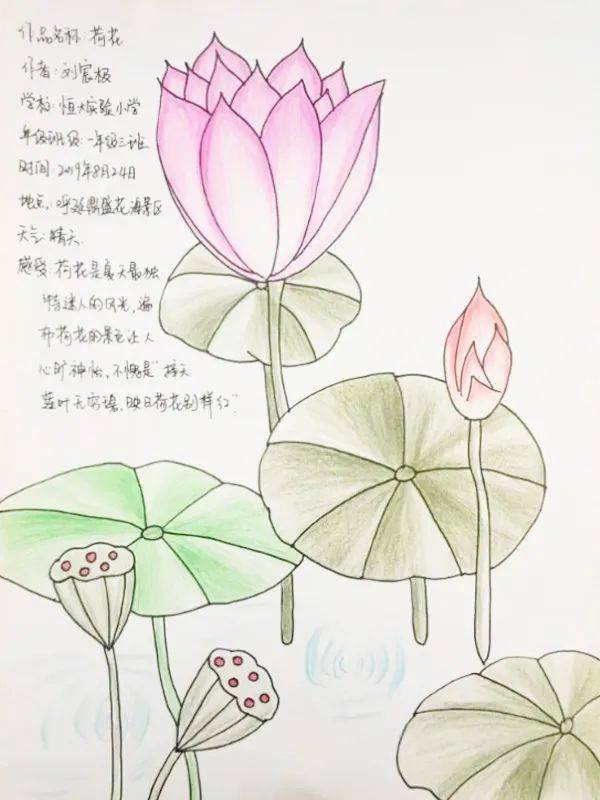 作品名称:荷花
作者:刘宸极
学校:恒大实验小学
年级班级:一年级三班
时间:2019年8月24日
地点:呼延鼎盛花海景区
天气:晴天
感受:荷花是夏天最独
特迷人的风光,遍
布荷花的景色让人
心旷神怡,不愧是“接天
莲叶无穷碧,映日荷花别样红”